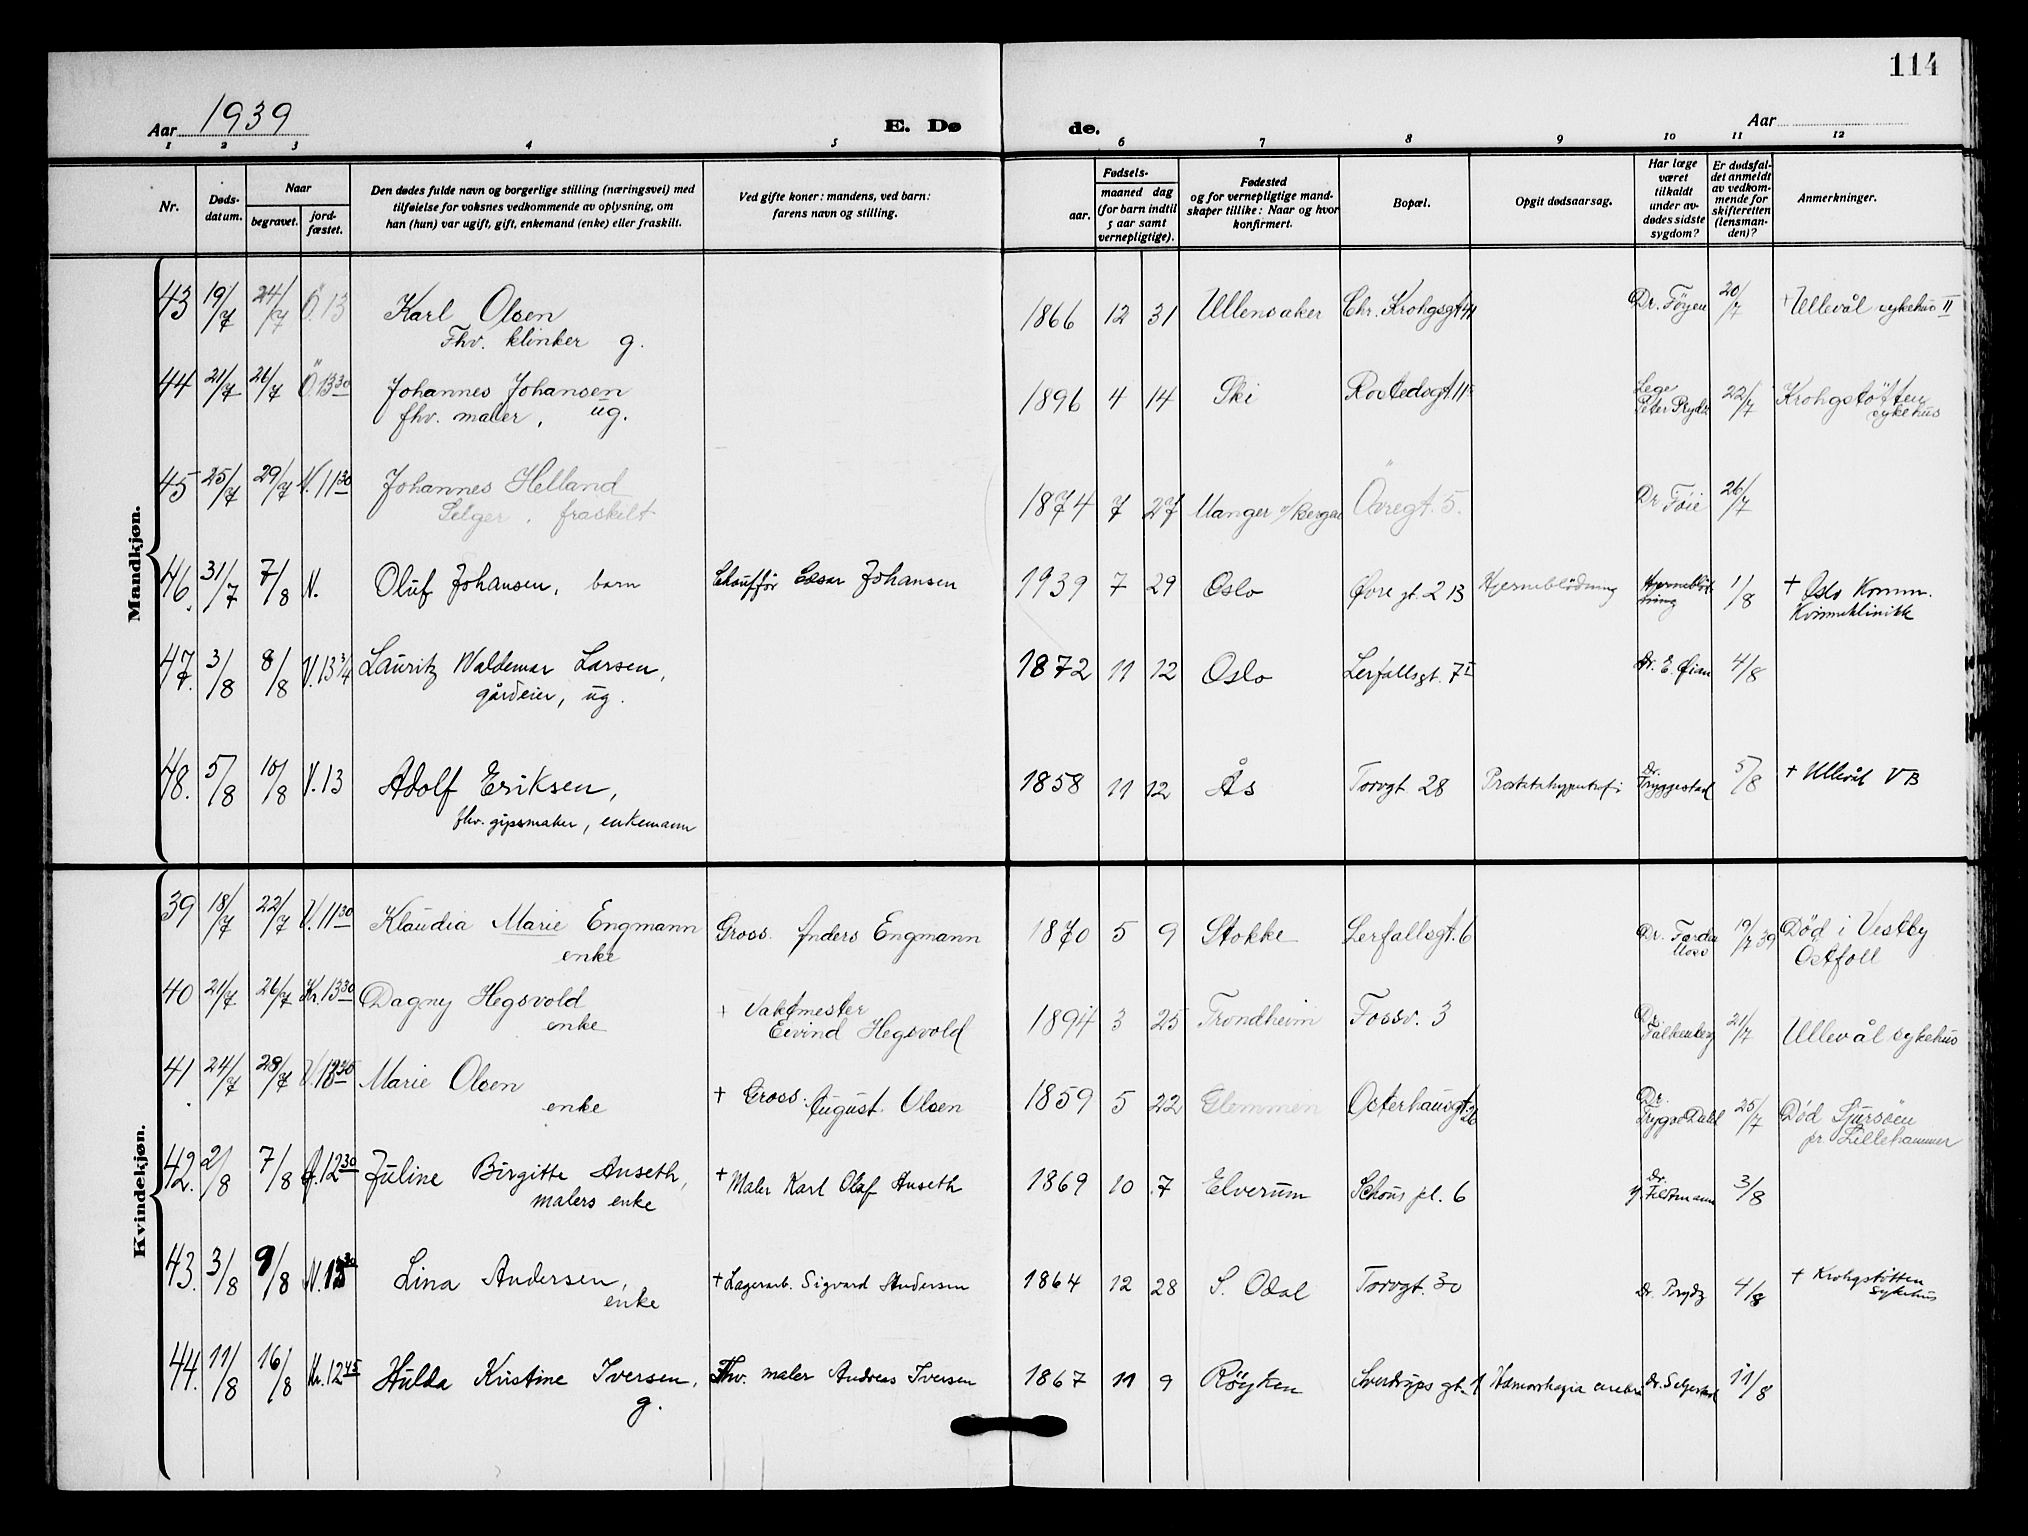 114
Aar 1939
E. Dø
de.
Aar
1 2 3 4 5 6 7 8 9 10 11 12
Nr.
Døds-
datum.
Naar
begravet.
jord-
fæstet.
Den dødes fulde navn og borgerlige stilling (næringsvei) med
tilføielse for voksnes vedkommende av oplysning, om
han (hun) var ugift, gift, enkemand (enke) eller fraskilt.
Ved gifte koner: mandens, ved barn:
farens navn og stilling.
Fødsels-
aar.
maaned dag
(for barn indtil
5 aar samt
vernepligtige).
Fødested
og for vernepligtige mand-
skaper tillike: Naar og hvor
konfirmert.
Bopæl.
Opgit dødsaarsag.
Har læge
været
tilkaldt
under av-
dødes sidste
sygdom?
Er dødsfal-
det anmeldt
av vedkom-
mende for
skifteretten
(lensman-
den)?
Anmerkninger.
Mandkjøn.
43 19/7 24/7 Ö. 13 Karl Olsen 1866 12 31 Ullensaker Chr. Krohgsgt 41 Dr. Föyen 20/7 Ullevål sykehus II
Fhv. klinker g.
44 21/7 26/7 Ö 13 30 Johannes Johansen 1896 4 14 Ski Rostedsgt. 11 Lege Peter Prydz 22/7 Krohgstötten
fhv. maler, ug. sykehus
45 25/7 29/7 V. 11 30 Johannes Helland 1874 7 27 Manger v/Bergen Övregt. 5. Dr Föie 26/7
Selger, fraskilt
46. 31/7 7/8 N. Oluf Johansen, barn Chauffør Cæsar Johansen 1939 7 29 Oslo Øvre gt. 2 B Hjerneblödning Hjerneblöd- 1/8 + Oslo Komm.
ning Kvinneklinikk
47. 3/8 8/8 V. 13 3/4 Lauritz Waldemar Larsen, 1872 11 12 Oslo Lerfallsgt. 7 I Dr. E. Øian 4/8
gårdeier, ug.
48. 5/8 10/8 V. 13 Adolf Eriksen, 1858 11 12 Ås Torvgt 28 Prostatahypertrofi Dr. Tryggestad 5/8 + Ullevål VB
fhv. gipsmaker, enkemann
Kvindekjøn.
39 18/7 22/7 V. 11 30 Klaudia Marie Engmann Gross. Anders Engmann 1870 5 9 Stokke Lerfallsgt. 6 Dr. 19/7 39 Död i Vestby
enke Moss Östfoll
40 21/7 26/7 Kr. 13 30 Dagny Hegsvold + Vaktmester 1894 3 25 Trondheim Fossv. 3 Dr. Falkenberg 21/7 Ullevål sykehus
enke Eivind Hegsvold
41. 24/7 28/7 Marie Olsen + Gross. August Olsen 1859 5 22 Glemmen Osterhausgt. 26 Dr. Trygve Dahl 25/7 Död Sjursöen
enke pr Lillehammer
42. 2/8 7/8 12 30 Juline Birgitte Anseth, + Maler Karl Olaf Anseth 1869 10 7 Elverum Schous pl. 6 Dr. Feldtmann 3/8
malers enke
43. 3/8 9/8 N. Lina Andersen, + Lagerarb. Sigvard Andersen 1864 12 28 S. Odal Torvgt. 30 Dr. Prydz 4/8 + Krohgstötten
enke sykehus
44. 11/8 16/8 Kr. 12 45 Hulda Kristine Iversen, Fhv. maler Andreas Iversen 1867 11 9 Röyken Sverdrups gt. 1 Hæmorrhagia cerebri Dr. Seljestad 11/8
g.